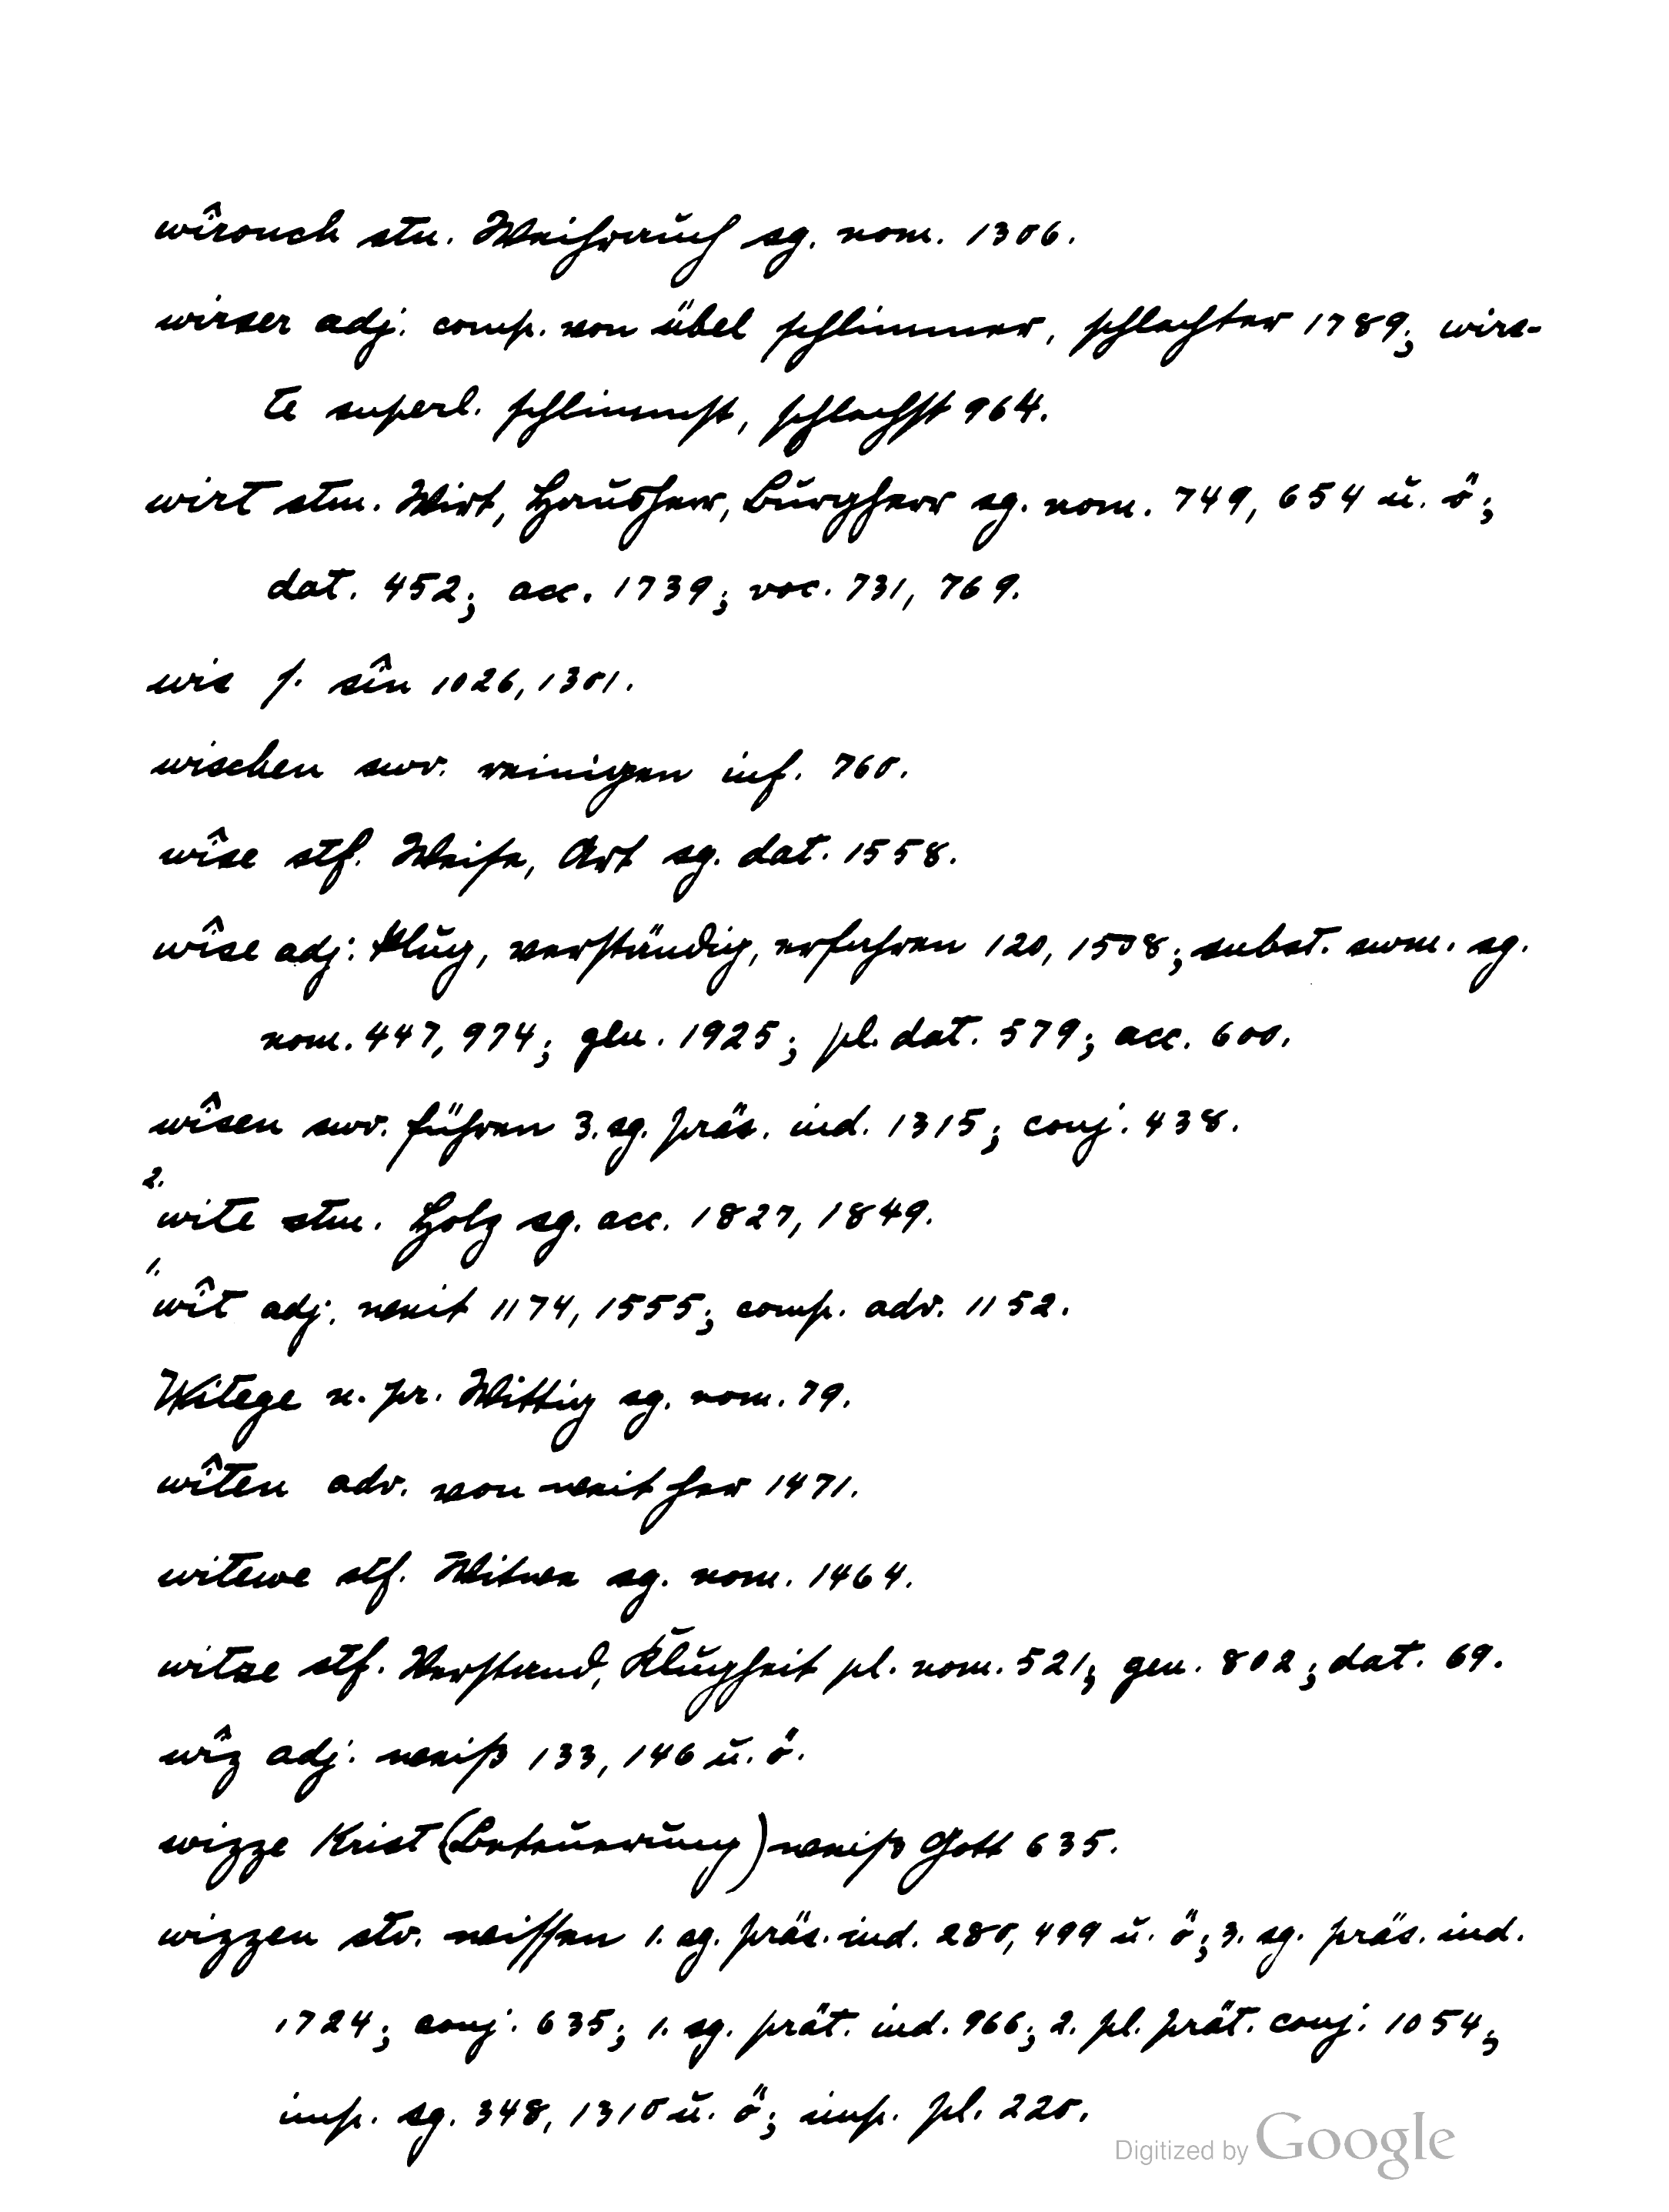 wîrouch stn. Weihrauch sg. nom. 1306.
wirser adj. comp. von übel schlimmer, schlechter 1789; wirs-
te superl. schlimmst, schlechst 964.
wirt stm. Wirt, Hausherr, Burgherr sg. nom. 749, 654 u. ö;
dat. 452; acc. 1739; voc. 731, 769.
wis s. sîn 1026, 1301.
wischen swv. reinigen inf. 760.
wîse stf. Weise, Art sg. dat. 1558.
wîse adj. klug, verständig, erfahren 120, 1508; subst. swm. sg.
nom. 447, 974; gen. 1925; pl. dat. 579; acc. 600.
wîsen swv. führen 3. sg. präs. ind. 1315; conj. 438.
2.
wite stm. Holz sg. acc. 1827, 1849.
1.
wît adj. weit 1174, 1555; comp. adv. 1152.
Witege n. pr. Wittig sg. nom. 79.
wîten adv. von weit her 1471.
witewe stf. Witwe sg. nom. 1464.
witze stf. Verstand, Klugheit pl. nom. 521; gen. 802; dat. 69.
wîz adj. weiß 133, 146 u. ö.
wizze Krist (Beteuerung) weiß Gott 635.
wizzen stv. wissen 1. sg. präs. ind. 280, 499 u. ö; 3. sg. präs. ind.
1724; conj. 635; 1. sg. prät. ind. 966; 2. pl. prät. conj. 1054;
imp. sg. 348, 1310 u. ö; imp. pl. 220.
Digitized by Google